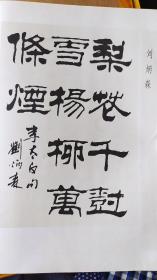 刘炳森
梨花千樹
雪楊柳萬
條煙
李太白句
劉炳森